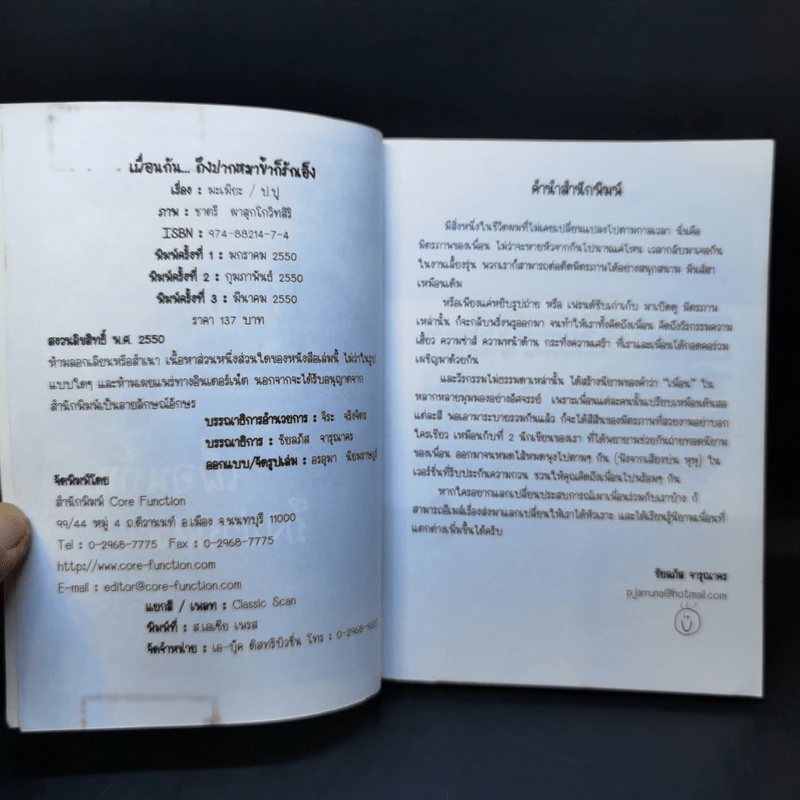 เพื่อนกัน... ถึงปากหมาข้าก็รักเอ็ง
เรื่อง : มะเมียะ / ป.ปู
ภาพ : ชาตรี ผาสุกโกวิทสิริ
ISBN : 974-88214-7-4
พิมพ์ครั้งที่ 1 : มกราคม 2550
พิมพ์ครั้งที่ 2 : กุมภาพันธ์ 2550
พิมพ์ครั้งที่ 3 : มีนาคม 2550
ราคา 137 บาท
สงวนลิขสิทธิ์ พ.ศ. 2550
ห้ามลอกเลียนหรือสำเนา เนื้อหาส่วนหนึ่งส่วนใดของหนังสือเล่มนี้ ไม่ว่าในรูป
แบบใดๆ และห้ามเผยแพร่ทางอินเตอร์เน็ต นอกจากจะได้รับอนุญาตจาก
สำนักพิมพ์เป็นลายลักษณ์อักษร
บรรณาธิการอำนวยการ : จิระ จริงจิตร
บรรณาธิการ : ชัยลภัส จารุณาคร
ออกแบบ/จัดรูปเล่ม : อรอุมา นิยมราษฎร์
จัดพิมพ์โดย
สำนักพิมพ์ Core Function
99/44 หมู่ 4 ถ.ติวานนท์ อ.เมือง จ.นนทบุรี 11000
Tel : 0-2968-7775 Fax : 0-2968-7775
http://www.core-function.com
E-mail : editor@core-function.com
แยกสี / เพลท : Classic Scan
พิมพ์ที่ : ส.เอเซีย เพรส
จัดจำหน่าย : เอ-บุ๊ค ดิสทริบิวชั่น โทร : 0-2968-
คำนำสำนักพิมพ์
มีสิ่งหนึ่งในชีวิตผมที่ไม่เคยเปลี่ยนแปลงไปตามกาลเวลา นั่นคือ
มิตรภาพของเพื่อน ไม่ว่าจะหายหัวจากกันไปนานแค่ไหน เวลากลับมาเจอกัน
ในงานเลี้ยงรุ่น พวกเราก็สามารถต่อติดมิตรภาพได้อย่างสนุกสนาน
เหมือนเดิม
หรือเพียงแค่หยิบรูปถ่าย หรือ เฟรนด์ชิปเก่าเก็บ มาเปิดดู มิตรภาพ
เหล่านั้น ก็จะกลับพรั่งพรูออกมา จนทำให้เราทั้งคิดถึงเพื่อน คิดถึงวีรกรรมความ
เสี้ยว ความซ่าส์ ความหน้าด้าน กระทั่งความเศร้า ที่เราและเพื่อนได้กอดคอร่วม
เผชิญมาด้วยกัน
และวีรกรรมไม่ธรรมดาเหล่านั้น ได้สร้างนิยามของคำว่า "เพื่อน" ใน
หลากหลายมุมมองอย่างอัศจรรย์ เพราะเพื่อนแต่ละคนนั้นเปรียบเหมือนดินสอ
แต่ละสี พอเอามาระบายรวมกันแล้ว ก็จะได้สีสันของมิตรภาพที่สวยงามอย่าบอก
ใครเชียว เหมือนกับที่ 2 นักเขียนของเรา ที่ได้พยายามช่วยกันถ่ายทอดนิยาม
ของเพื่อน ออกมาจนหมดไส้หมดพุงไปตามๆ กัน (ฟังจากเสียงบ่น หุหุ) ใน
เวอร์ชั่นที่รับประกันความกวน ชวนให้คุณคิดถึงเพื่อนไปพร้อมๆ กัน
หากใครอยากแลกเปลี่ยนประสบการณ์เผาเพื่อนร่วมกับเราบ้าง ก็
สามารถอีเมล์เรื่องส่งมาแลกเปลี่ยนให้เราได้หัวเราะ และได้เรียนรู้นิยามเพื่อนที่
แตกต่างเพิ่มขึ้นได้ครับ
ชัยลภัส จารุณาคร
p.jarruna@hotmail.com